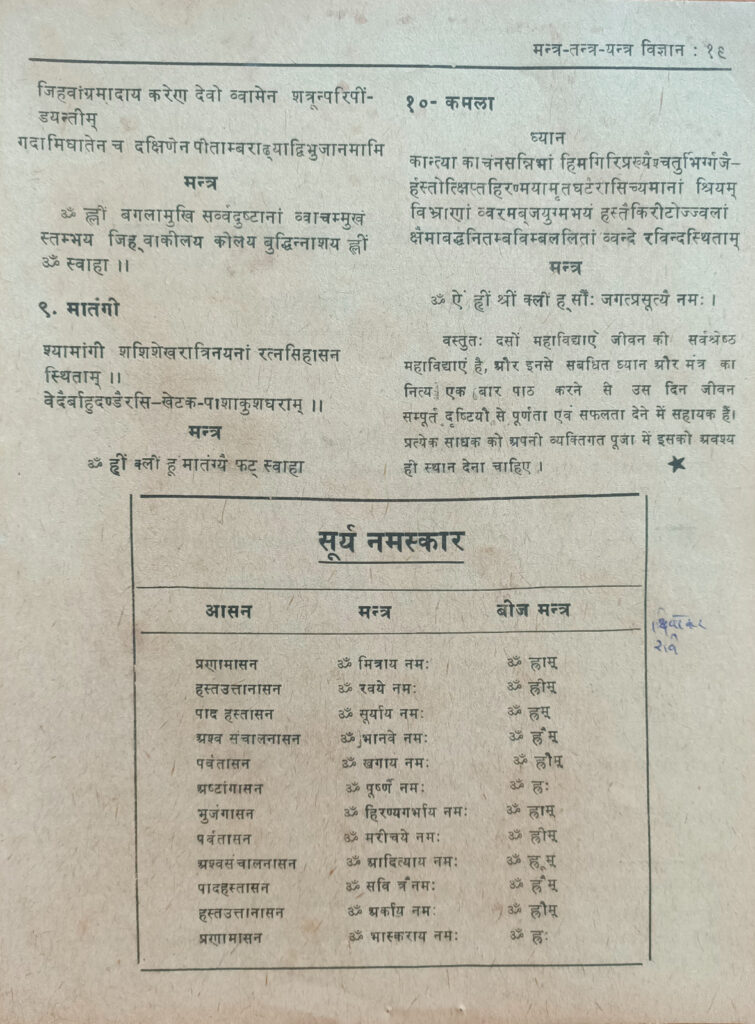 मन्त्र-तन्त्र-यन्त्र विज्ञान : १९
जिहवांग्रमादाय करेण देवो व्वामेन शत्रून्परिपीं-
डयन्तीम्
गदामिघातेन च दक्षिणेन पीताम्बराढ्याद्विभुजानमामि
मन्त्र
ॐ ह्लीं बगलामुखि सर्व्वदुष्टानां व्वाचम्मुखं
स्तम्भय जिह्वाकीलय कोलय बुद्धिन्नाशय ह्लीं
ॐ स्वाहा ।।
९. मातंगी
श्यामांगी शशिशेखरात्रिनयनां रत्नसिहासन
स्थिताम् ।।
वेदैर्बाहुदण्डैरसि-खेटक-पाशाकुशधराम् ।।
मन्त्र
ॐ ह्रीं क्लीं हूं मातंग्यै फट् स्वाहा
१०- कमला
ध्यान
कान्त्या काचंनसन्निभां हिमगिरिप्रख्यैश्चतुर्भिर्ग्गजै-
र्हस्तोत्क्षिप्तहिरण्मयामृतघटैरासिच्यमानां श्रियम्
विभ्राणां व्वरमब्जयुग्मभयं हस्तैकिरीटोज्ज्वलां
क्षैमाबद्धनितम्बविम्बललितां व्वन्दे रविन्दस्थिताम्
मन्त्र
ॐ ऐं ह्रीं श्रीं क्लीं ह्सौः जगत्प्रसूत्यै नमः ।
वस्तुतः दसों महाविद्याएं जीवन की सर्वश्रेष्ठ
महाविद्याएं है, और इनसे सबधित ध्यान और मंत्र का
नित्य एक बार पाठ करने से उस दिन जीवन
सम्पूर्त दृष्टियौ से पूर्णता एवं सफलता देने में सहायक हैं।
प्रत्येक साधक को अपनी व्यक्तिगत पूजा में इसको अवश्य
ही स्थान देना चाहिए ।
सूर्य नमस्कार
आसन मन्त्र बीज मन्त्र
प्रणामासन ॐ मित्राय नमः ॐ ह्राम्
हस्तउत्तानासन ॐ रवये नमः ॐ ह्रीम्
पाद हस्तासन ॐ सूर्याय नमः ॐ ह्रम्
अश्व संचालनासन ॐ भानवे नमः ॐ ह्रैम्
पर्वतासन ॐ खगाय नमः ॐ ह्रौम्
अष्टांगासन ॐ पूर्ष्णे नमः ॐ ह्रः
भुजंगासन ॐ हिरण्यगर्भाय नमः ॐ ह्राम्
पर्वतासन ॐ मरीचये नमः ॐ ह्रीम्
अश्वसंचालनासन ॐ आदित्याय नमः ॐ ह्रूम्
पादहस्तासन ॐ सवि त्रै नमः ॐ ह्रैम्
हस्तउत्तानासन ॐ अर्काय नमः ॐ ह्रौम्
प्रणामासन ॐ भास्कराय नमः ॐ ह्रः